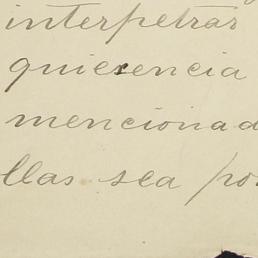 interpetrar
quiesencia
mencionad
llas sea po